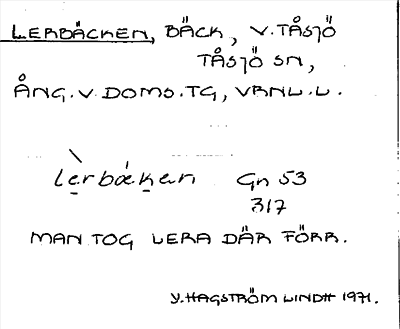 LERBÄCKEN, BÄCK, V. TÅSJÖ
TÅSJÖ SN,
ÅNG. V. DOMS. TG, VRNL. L.
lèrbækan Gn 53
317
MAN TOG LERA DÄR FÖRR.
Y. HAGSTRÖM LINDH 1971.